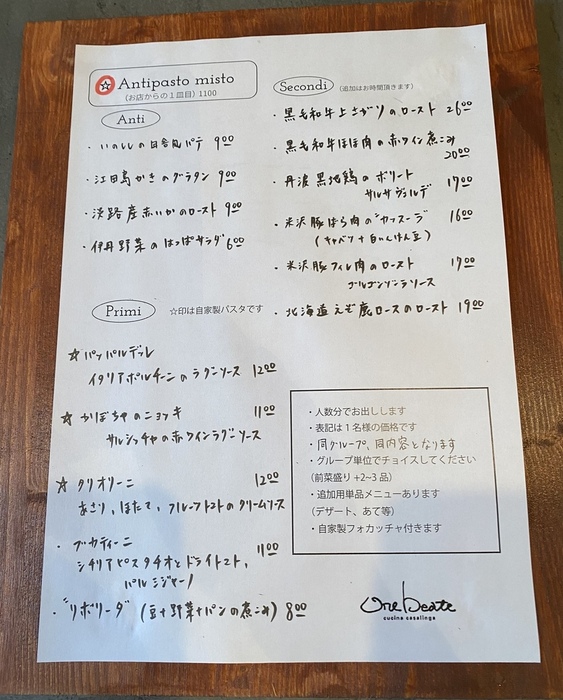 ☆ Antipasto misto
(お店からの1皿目) 1100
Anti
・いのししの田舎風パテ 900
・江田島かきのグラタン 900
・淡路産赤いかのロースト 900
・伊丹野菜のはっぱサラダ 600
Primi ☆印は自家製パスタです
☆ パッパルデッレ
イタリアポルチーニのラグーソース 1200
☆ かぼちゃのニョッキ 1100
サルシッチャの赤ワインラグーソース
☆ タリオリーニ 1200
あさり、ほたて、フルーツトマトのクリームソース
・ブカティーニ 1100
シチリアピスタチオとドライトマト、
パルミジャーノ
・"リボリータ" (豆+野菜+パンの煮こみ) 800
Secondi (追加はお時間頂きます)
・黒毛和牛上さがりのロースト 2600
・黒毛和牛ほほ肉の赤ワイン煮こみ
2000
・丹波黒地鶏のボリート 1700
サルサヴェルデ
・米沢豚ばら肉の"カッスーラ" 1600
(キャベツ+白いんげん豆)
・米沢豚フィレ肉のロースト 1700
ゴルゴンゾーラソース
・北海道えぞ鹿ロースのロースト 1900
・人数分でお出しします
・表記は1名様の価格です
・同グループ、同内容となります
・グループ単位でチョイスしてください
(前菜盛り+2~3品)
・追加用単品メニューあります
(デザート、あて等)
・自家製フォカッチャ付きます
Ore beate
cucina casalinga